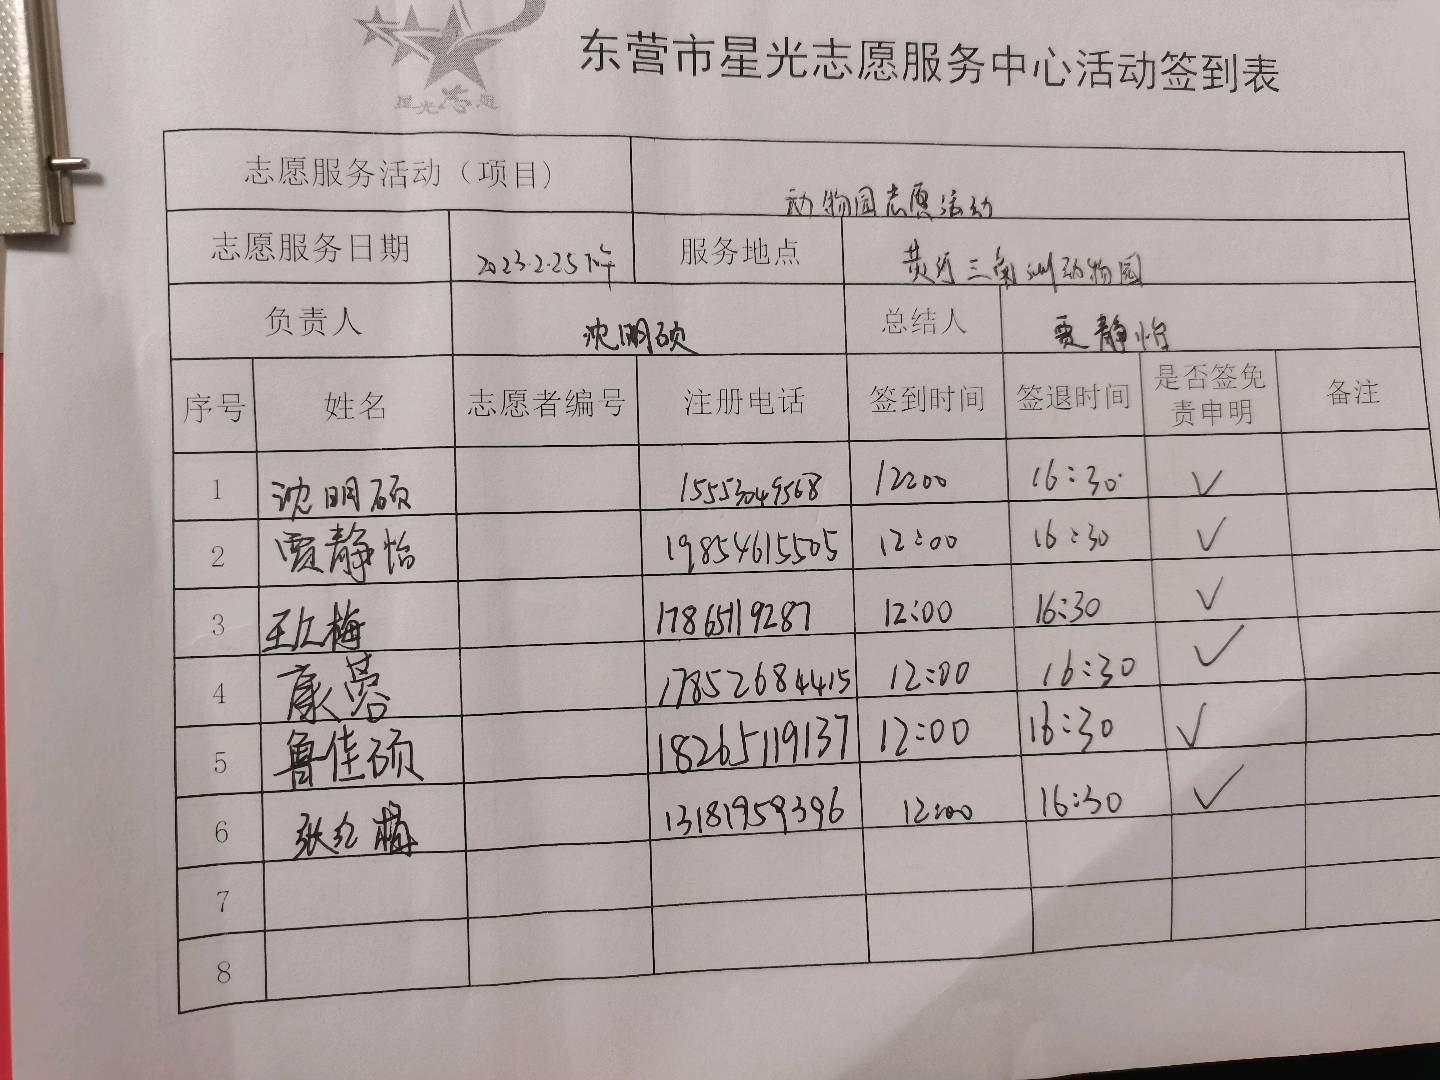 星光志愿
东营市星光志愿服务中心活动签到表
志愿服务活动（项目） 动物园志愿活动
志愿服务日期 2023.2.25下午 服务地点 黄河三角洲动物园
负责人 沈明硕 总结人 贾静怡
序号 姓名 志愿者编号 注册电话 签到时间 签退时间 是否签免责申明 备注
1 沈明硕 15553049568 12:00 16:30 ✓
2 贾静怡 19854615505 12:00 16:30 ✓
3 王仁梅 17865119287 12:00 16:30 ✓
4 康蕓 17852684415 12:00 16:30 ✓
5 鲁佳硕 18265119137 12:00 16:30 ✓
6 张红梅 13181959396 12:00 16:30 ✓
7
8